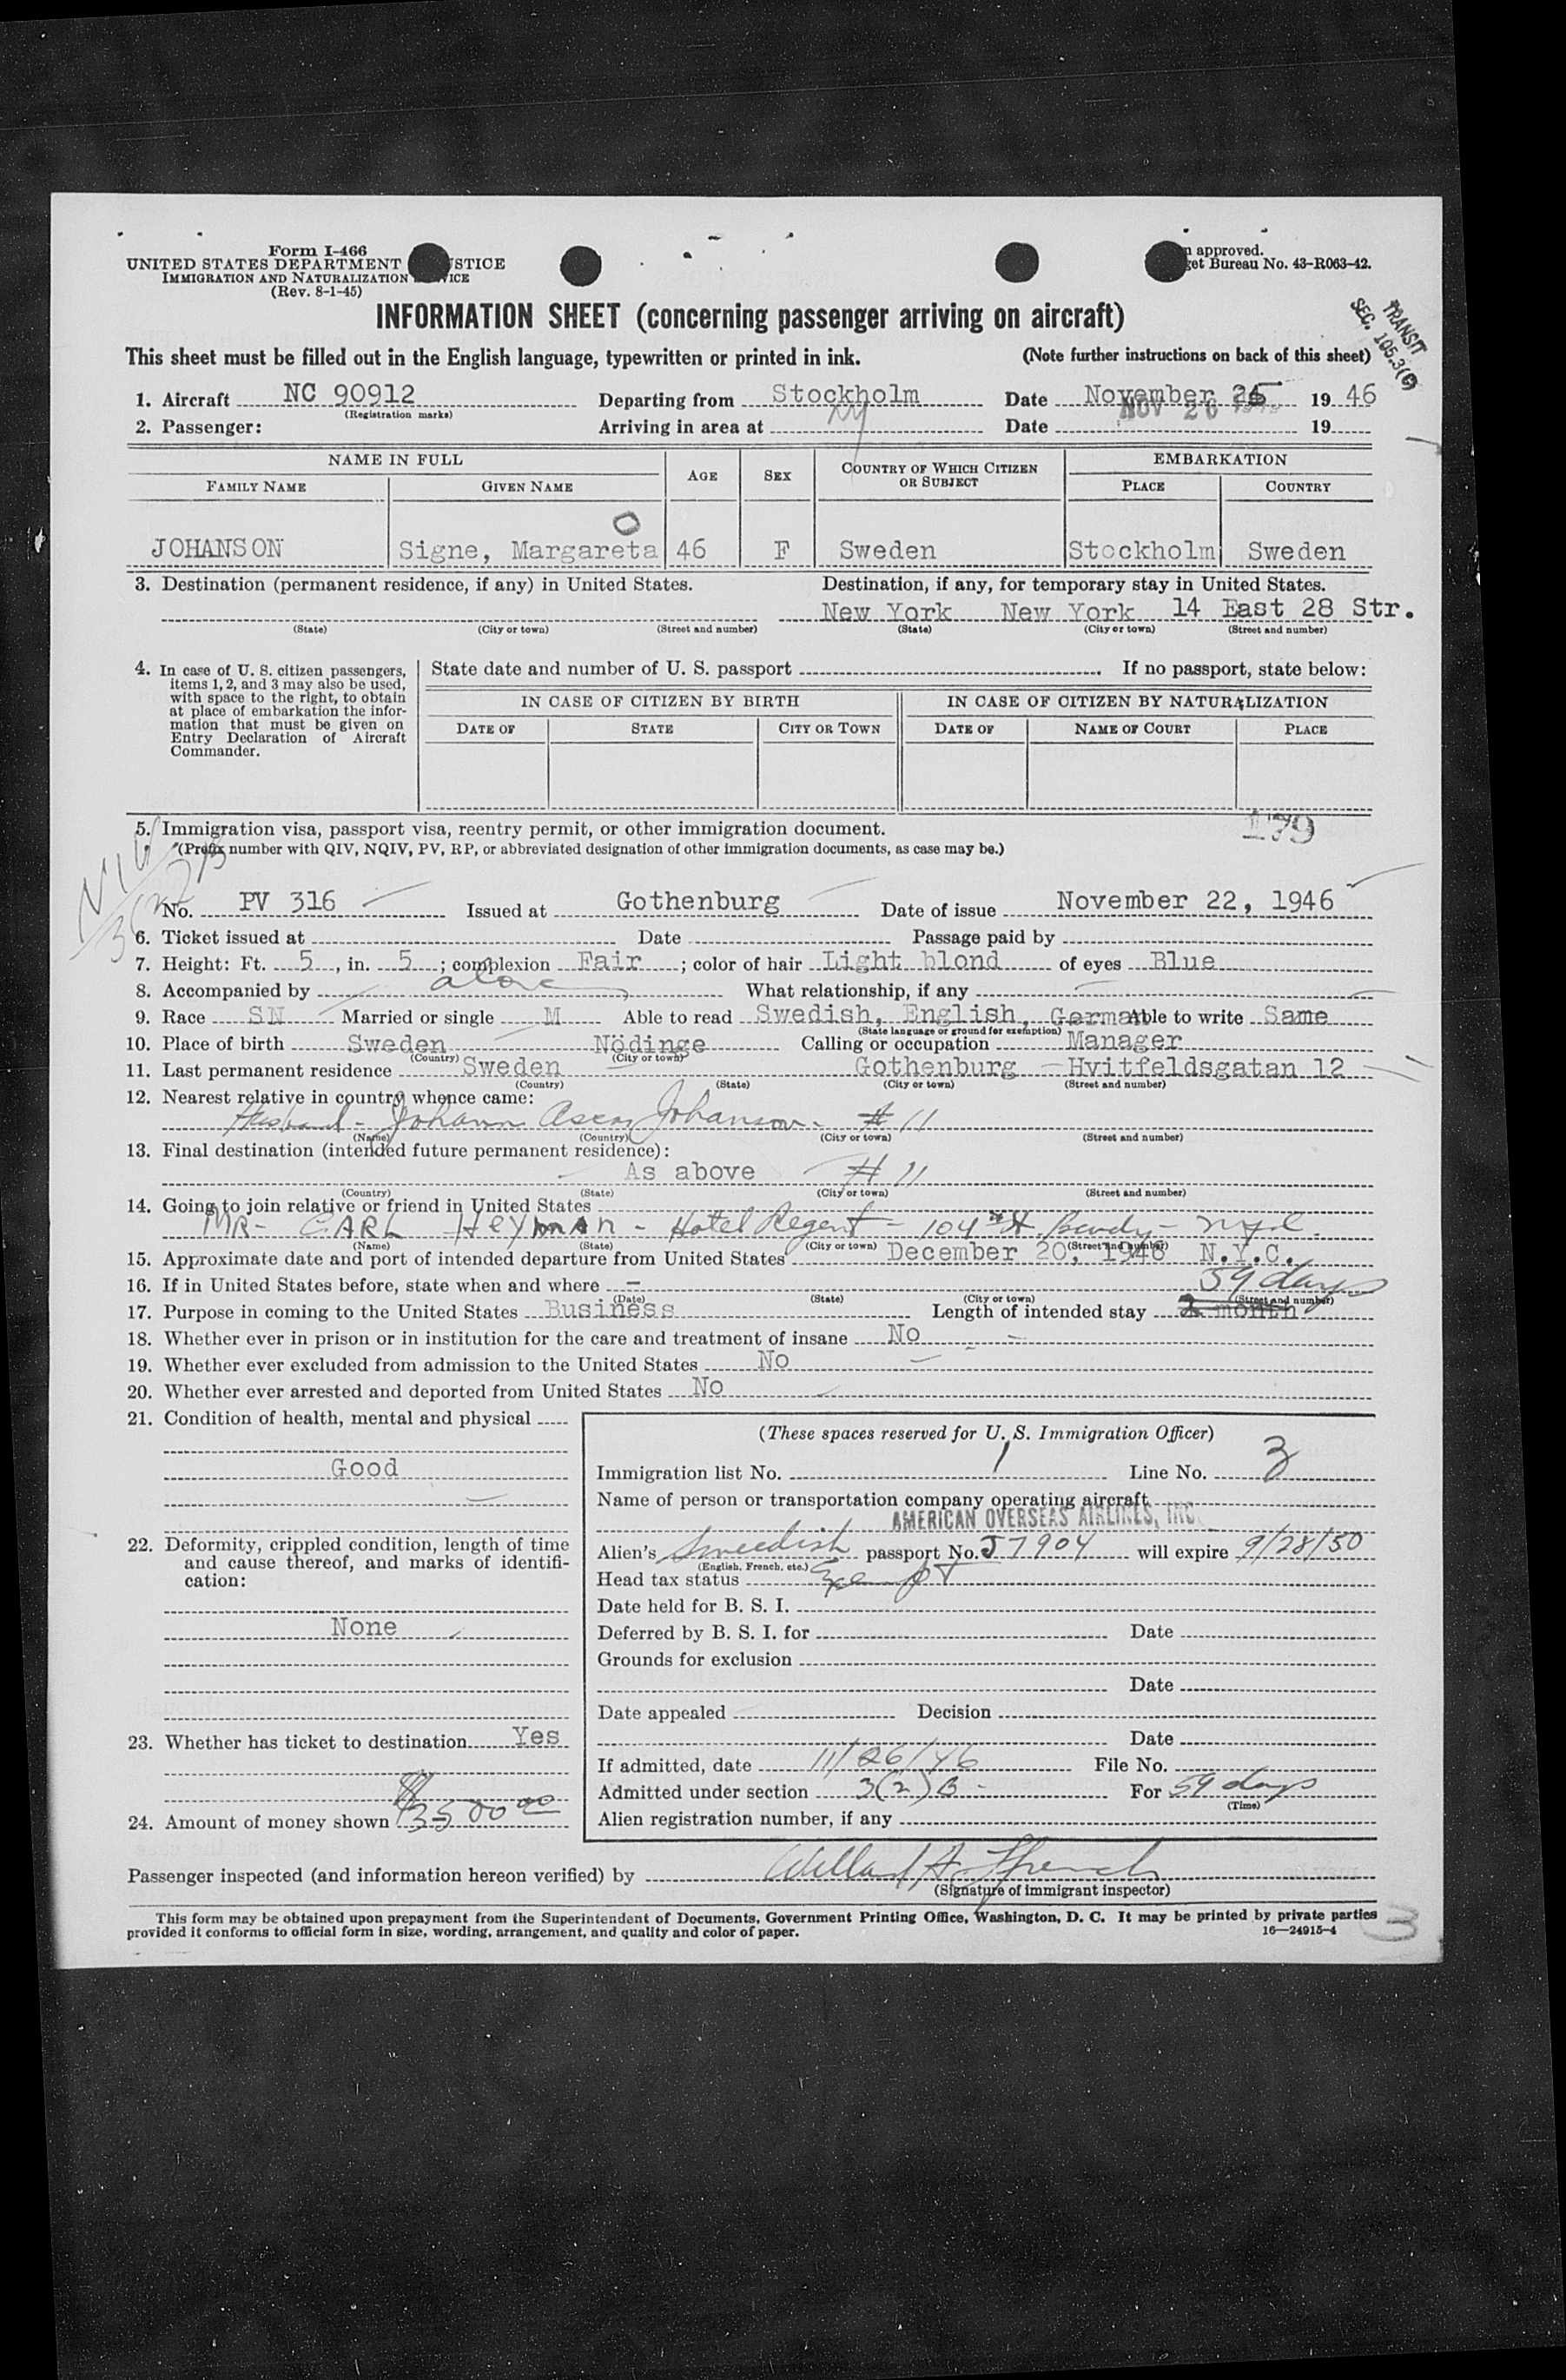 Form I-466
UNITED STATES DEPARTMENT STICE
IMMIGRATION AND NATURALIZATION VICE
(Rev. 8-1-45)
n approved.
et Bureau No. 43-R063-42.
TRANSIT
SEC. 105.3(C)
INFORMATION SHEET (concerning passenger arriving on aircraft)
This sheet must be filled out in the English language, typewritten or printed in ink. (Note further instructions on back of this sheet)
1. Aircraft NC 90912 Departing from Stockholm Date November 25 1946
(Registration marks)
NOV 26
2. Passenger: Arriving in area at NY Date 19
NAME IN FULL AGE SEX COUNTRY OF WHICH CITIZEN OR SUBJECT EMBARKATION
FAMILY NAME GIVEN NAME PLACE COUNTRY
O
JOHANSON Signe, Margareta 46 F Sweden Stockholm Sweden
3. Destination (permanent residence, if any) in United States. Destination, if any, for temporary stay in United States.
New York New York 14 East 28 Str.
(State) (City or town) (Street and number) (State) (City or town) (Street and number)
4. In case of U. S. citizen passengers, items 1, 2, and 3 may also be used, with space to the right, to obtain at place of embarkation the information that must be given on Entry Declaration of Aircraft Commander.
State date and number of U. S. passport If no passport, state below:
IN CASE OF CITIZEN BY BIRTH IN CASE OF CITIZEN BY NATURALIZATION
DATE OF STATE CITY OR TOWN DATE OF NAME OF COURT PLACE
179
5. Immigration visa, passport visa, reentry permit, or other immigration document.
(Prefix number with QIV, NQIV, PV, RP, or abbreviated designation of other immigration documents, as case may be.)
No. PV 316 Issued at Gothenburg Date of issue November 22, 1946
6. Ticket issued at Date Passage paid by
7. Height: Ft. 5, in. 5; complexion Fair; color of hair Light blond of eyes Blue
8. Accompanied by alone What relationship, if any
9. Race SN Married or single M Able to read Swedish, English, German Able to write Same
(State language or ground for exemption)
10. Place of birth Sweden Nödinge Calling or occupation Manager
(Country) (City or town)
11. Last permanent residence Sweden Gothenburg Hvitfeldsgatan 12
(Country) (State) (City or town) (Street and number)
12. Nearest relative in country whence came:
Husband - Johann Oscar Johanson - #11
(Name) (Country) (City or town) (Street and number)
13. Final destination (intended future permanent residence):
As above #11
(Country) (State) (City or town) (Street and number)
14. Going to join relative or friend in United States
MR - CARL Heyman - Hotel Regent - 104th St Bwdy - NYC.
(Name) (State) (City or town) (Street and number)
15. Approximate date and port of intended departure from United States December 20, 1946 N.Y.C.
16. If in United States before, state when and where –
(Date) (State) (City or town) (Street and number)
59 days
17. Purpose in coming to the United States Business Length of intended stay 2 month
18. Whether ever in prison or in institution for the care and treatment of insane No
19. Whether ever excluded from admission to the United States No
20. Whether ever arrested and deported from United States No
21. Condition of health, mental and physical
Good
22. Deformity, crippled condition, length of time and cause thereof, and marks of identification:
None
23. Whether has ticket to destination Yes
24. Amount of money shown $3500.00
(These spaces reserved for U. S. Immigration Officer)
Immigration list No. 1 Line No. 3
Name of person or transportation company operating aircraft
AMERICAN OVERSEAS AIRLINES, INC.
Alien's Swedish passport No. J7904 will expire 9/28/50
(English, French, etc.)
Head tax status Exempt
Date held for B. S. I.
Deferred by B. S. I. for Date
Grounds for exclusion
Date
Date appealed Decision
Date
If admitted, date 11/26/46 File No.
Admitted under section 3(2)B - For 59 days
(Time)
Alien registration number, if any
Passenger inspected (and information hereon verified) by Willard A. French
(Signature of immigrant inspector)
This form may be obtained upon prepayment from the Superintendent of Documents, Government Printing Office, Washington, D. C. It may be printed by private parties
provided it conforms to official form in size, wording, arrangement, and quality and color of paper. 16—24915-4
3